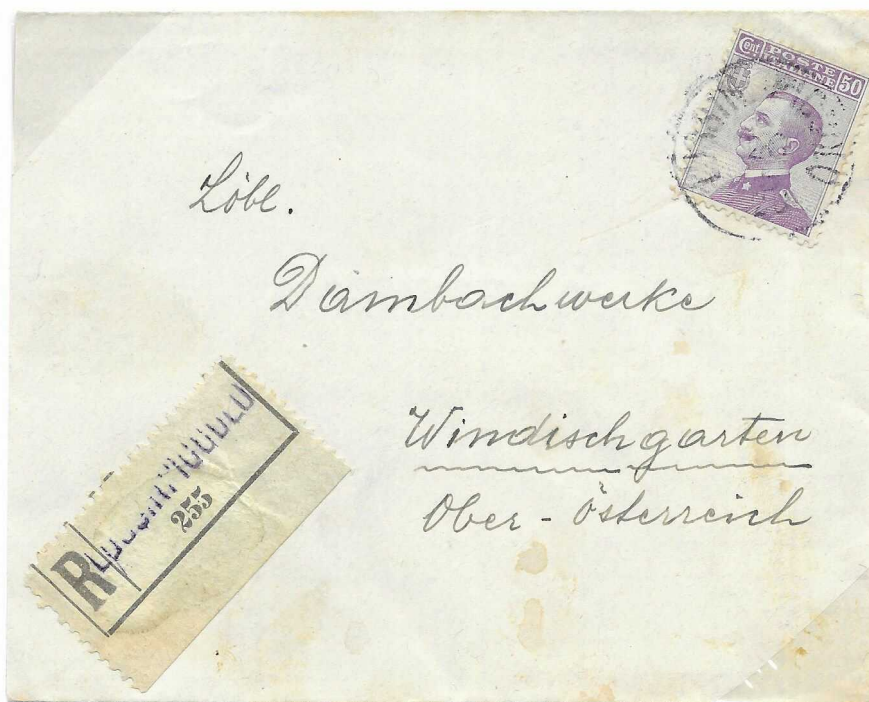 Cent POSTE ITALIANE 50
Löbl.
Dambachwerke
Windischgarten
Ober-Österreich
R
255